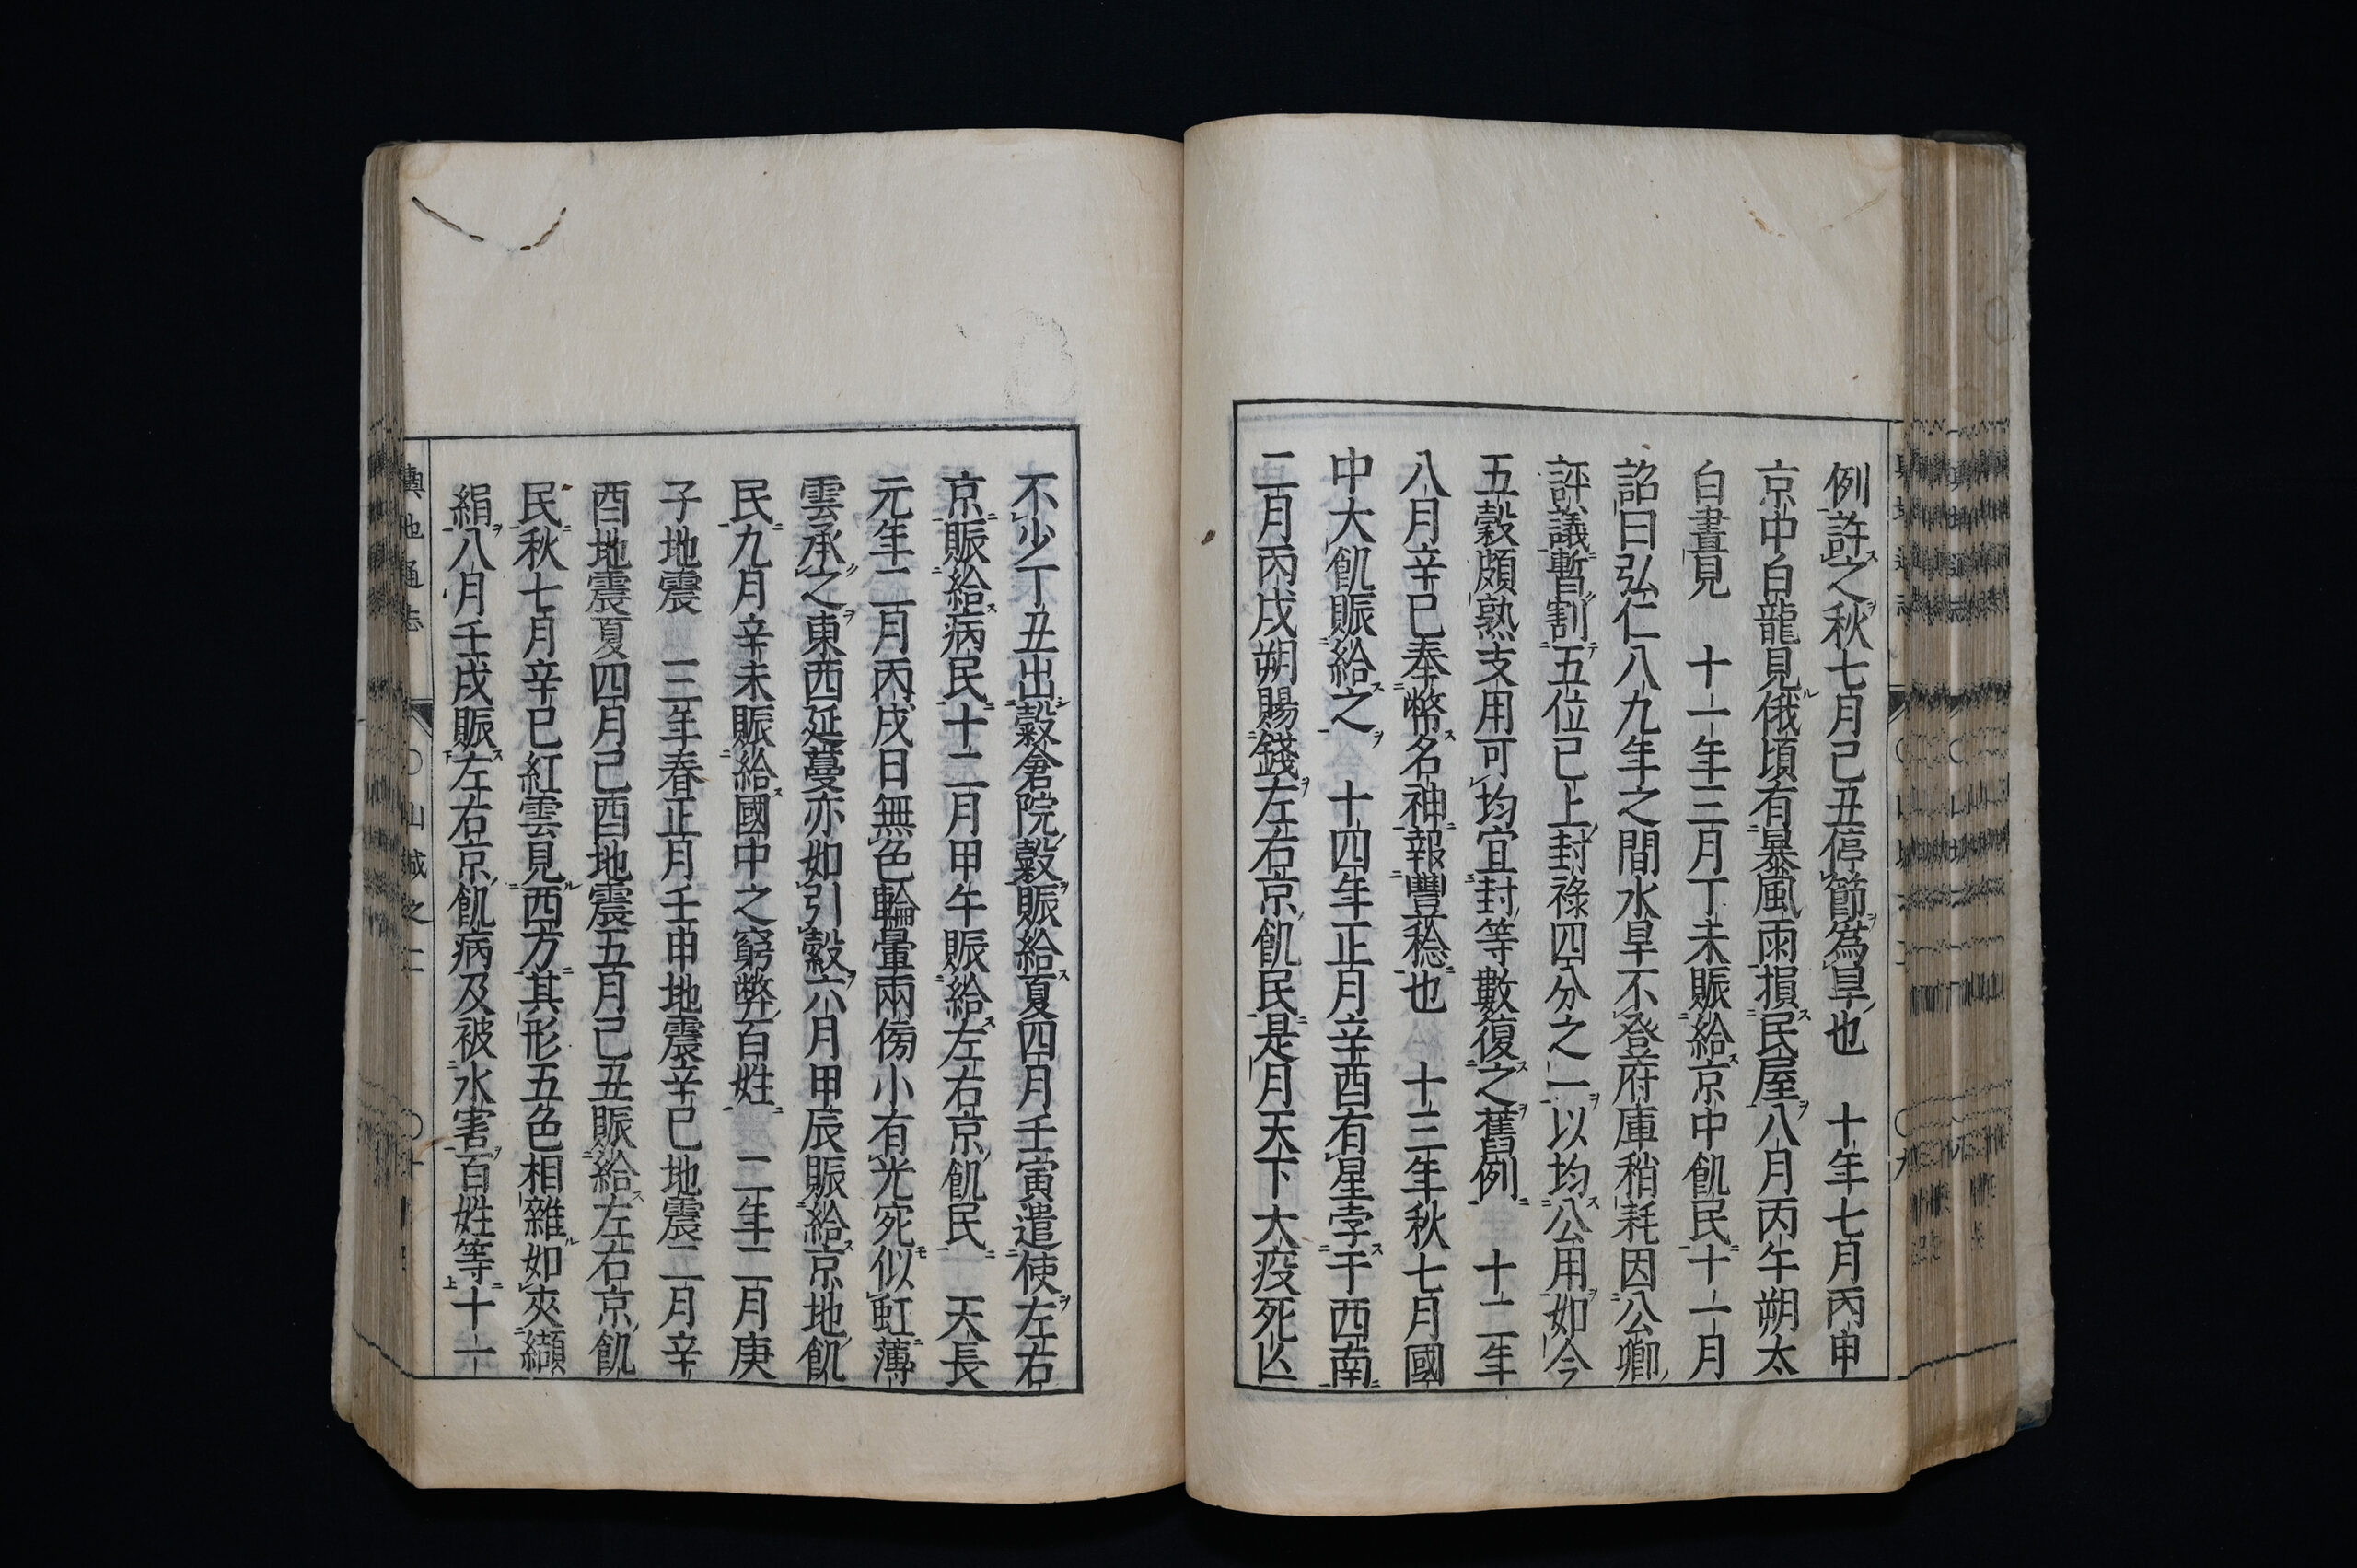 例許之秋七月己丑停節爲旱也　十年七月丙申
京中白龍見俄頃有暴風雨損民屋八月丙午朔太
白晝見　十一年三月丁未賑給京中飢民十一月
詔曰弘仁八九年之間水旱不登府庫稍耗因公卿
評議暫割五位已上封祿四分之一以均公用如今
五穀頗熟支用可均宜封等數復之舊例　十二年
八月辛巳奉幣名神報豐稔也　十三年秋七月國
中大飢賑給之　十四年正月辛酉有星孛于西南
二月丙戌朔賜錢左右京飢民是月天下大疫死亾
不少丁丑出穀倉院穀賑給夏四月壬寅遣使左右
京賑給病民十二月甲午賑給左右京飢民　天長
元年二月丙戌日無色輪暈兩傍小有光宛似虹薄
雲承之東西延蔓亦如引縠六月甲辰賑給京地飢
民九月辛未賑給國中之窮弊百姓　二年二月庚
子地震　三年春正月壬申地震辛巳地震二月辛
酉地震夏四月己酉地震五月己丑賑給左右京飢
民秋七月辛巳紅雲見西方其形五色相雜如夾纈
絹八月壬戌賑左右京飢病及被水害百姓等十一
輿地通志　〇山城之二　〇十